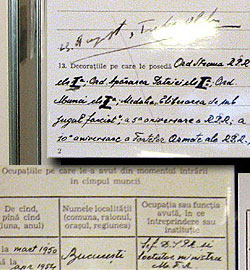 23 August,
13. Decorațiile pe care le posedă Ord. Steaua R.P.R.
cls I-a; Ord. Apărarea Patriei cls I-a; Ord.
Muncii cls I-a, Medalia Eliberarea de sub
jugul fascist, a 5-a aniversare a R.P.R.; a
10-a aniversare a Forțelor Armate ale R.P.R.;
2
Ocupațiile pe care le-a avut din momentul intrării
în cîmpul muncii
De cînd,
pînă cînd
(luna, anul)
Numele localității
(comuna, raionul,
orașul, regiunea)
Ocupația sau funcția
avută, în ce
întreprindere sau
instituție
la mart 1950
la apr 1954
București
Șef D.S.P.R. și
Locțiitor ministru
M.F.A.